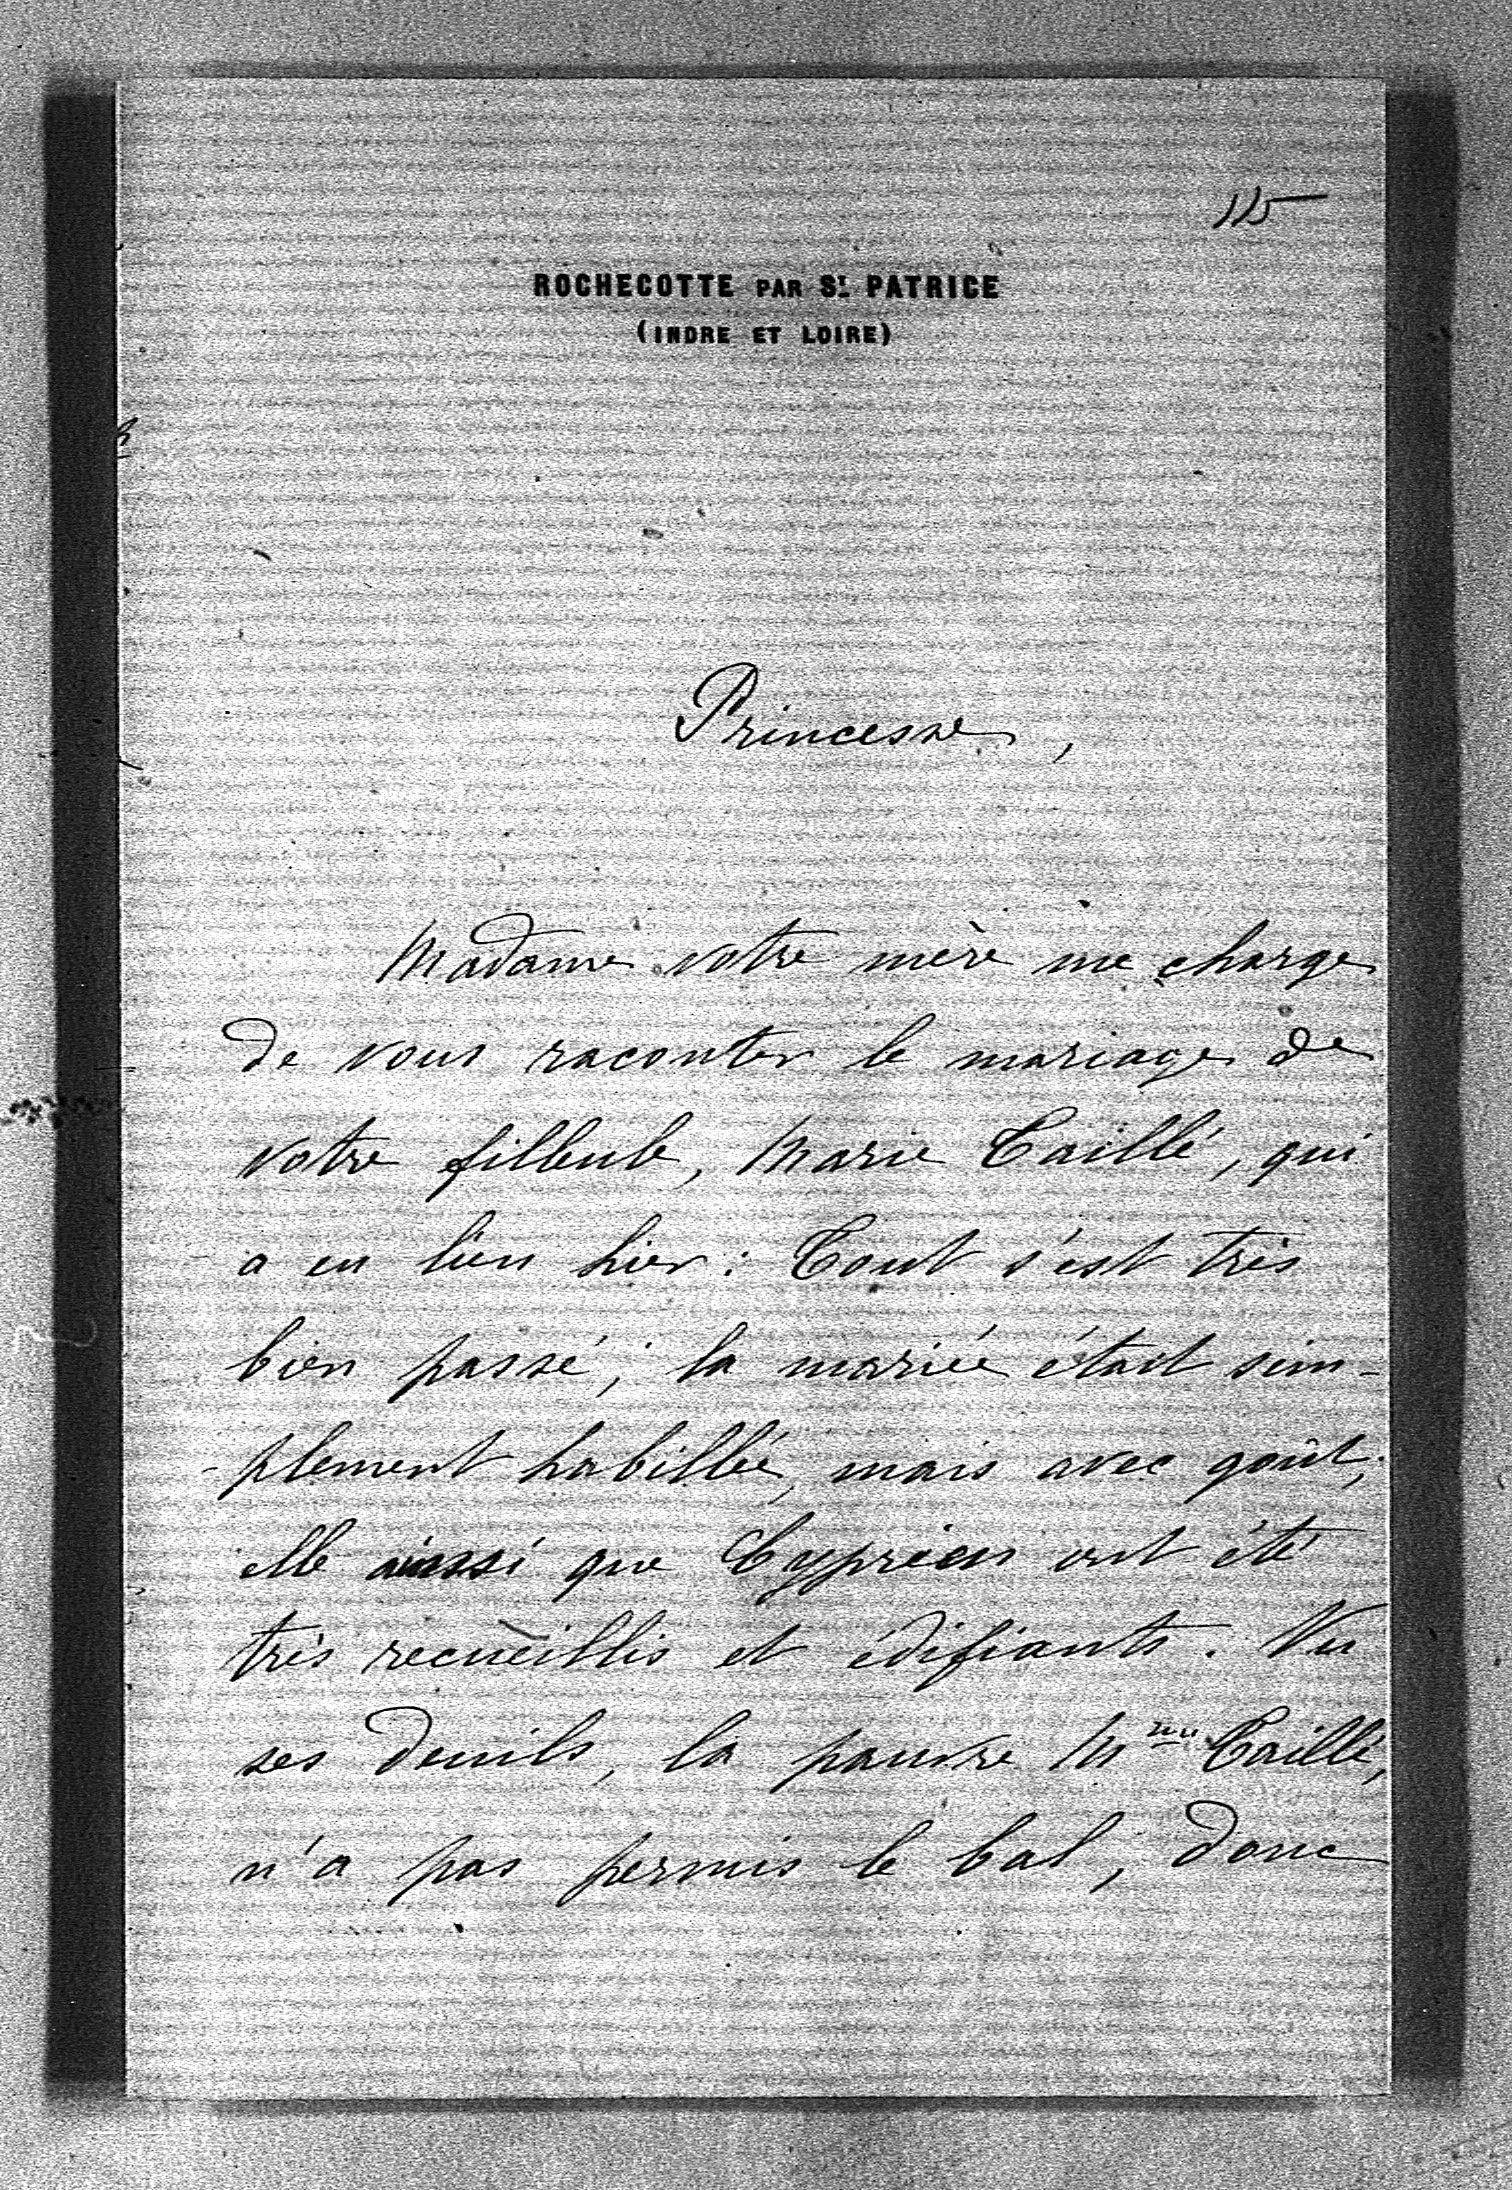 115
ROCHECOTTE PAR ST. PATRICE
(INDRE ET LOIRE)
Princesse,
Madame votre mère me charge
de vous raconter le mariage de
votre filleule, Marie Taillé, qui
a eu lieu hier : Tout s'est très
bien passé ; la mariée était sim-
-plement habillée, mais avec goût,
elle ainsi que Cyprien ont été
très recueillis et édifiants. Vu
ses deuils, la pauvre Mme Taillé,
n'a pas permis le bal, donc